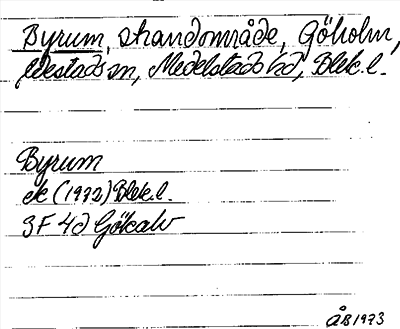 Byrum, strandområde, Göholm,
Listerby sn, Medelstads hd, Blek.l.
Byrum
ek (1972) Blek.l.
3F 4d Gökalv
ÅB 1973